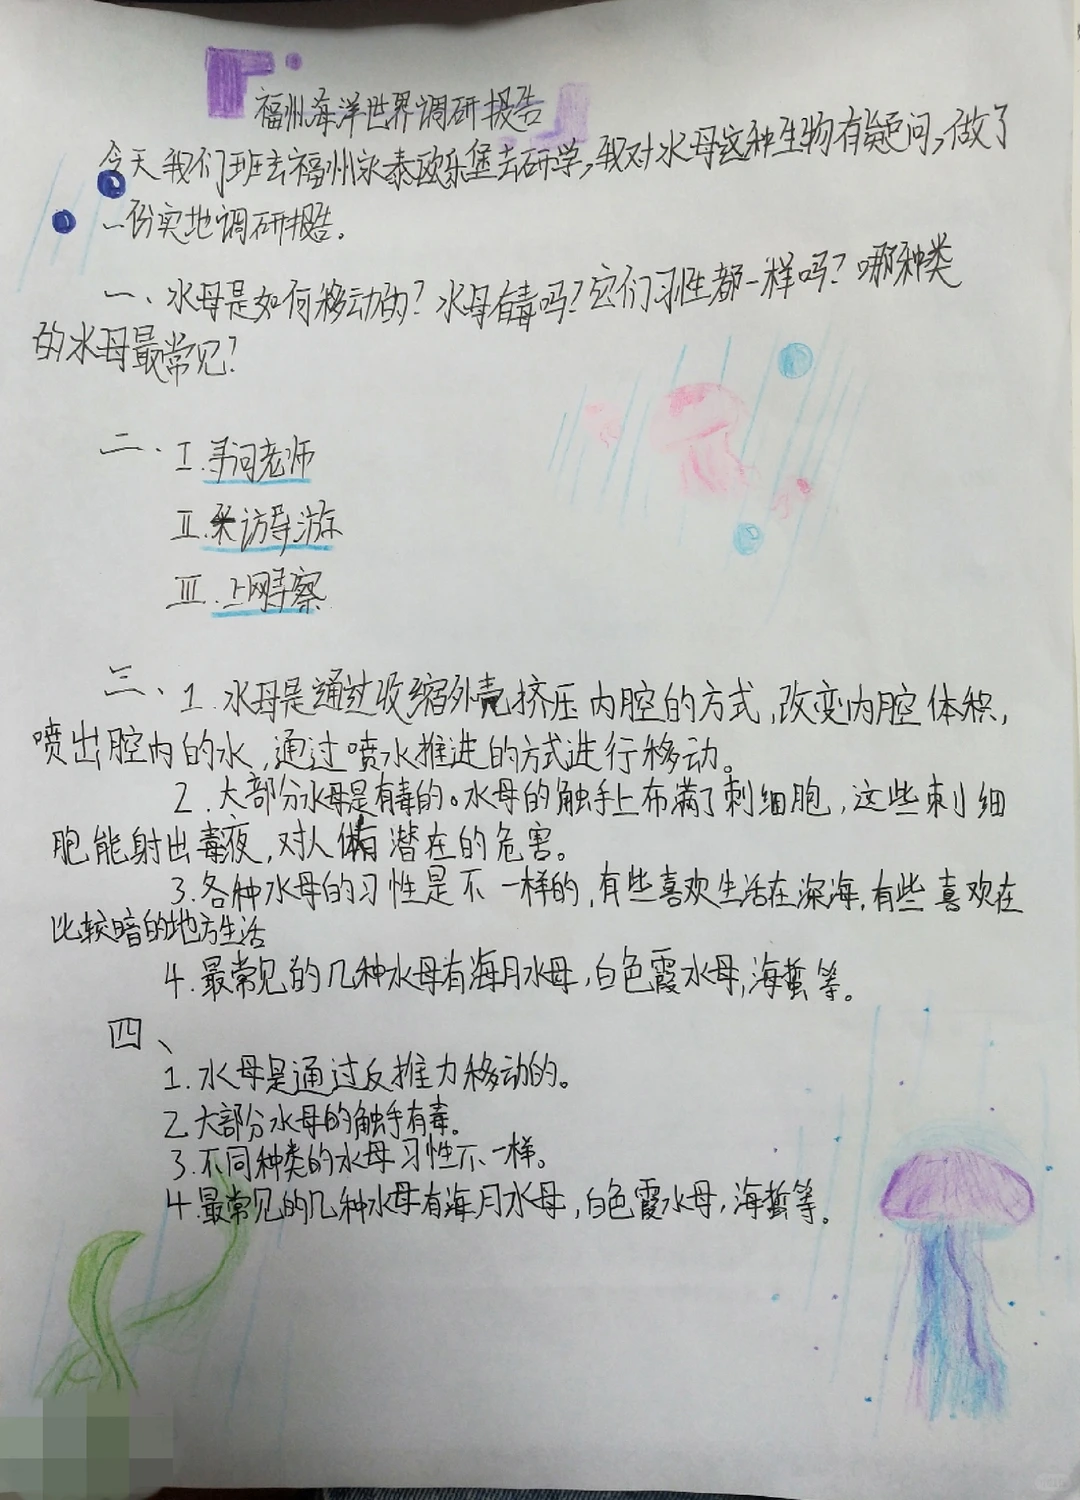 福州海洋世界调研报告
今天我们班去福州永泰欧乐堡去研学,我对水母这种生物有疑问,做了
一份实地调研报告。
一、水母是如何移动的?水母有毒吗?它们习性都一样吗?哪种类
的水母最常见?
二、I.寻问老师
II.采访导游
III.上网寻察
三、1.水母是通过收缩外壳挤压内腔的方式,改变内腔体积,
喷出腔内的水,通过喷水推进的方式进行移动。
2.大部分水母是有毒的。水母的触手上布满了刺细胞,这些刺细
胞能射出毒夜,对人体有潜在的危害。
3.各种水母的习性是不一样的,有些喜欢生活在深海,有些喜欢在
比较暗的地方生活
4.最常见的几种水母有海月水母,白色霞水母,海蜇等。
四、
1.水母是通过反推力移动的。
2.大部分水母的触手有毒。
3.不同种类的水母习性不一样。
4.最常见的几种水母有海月水母,白色霞水母,海蜇等。